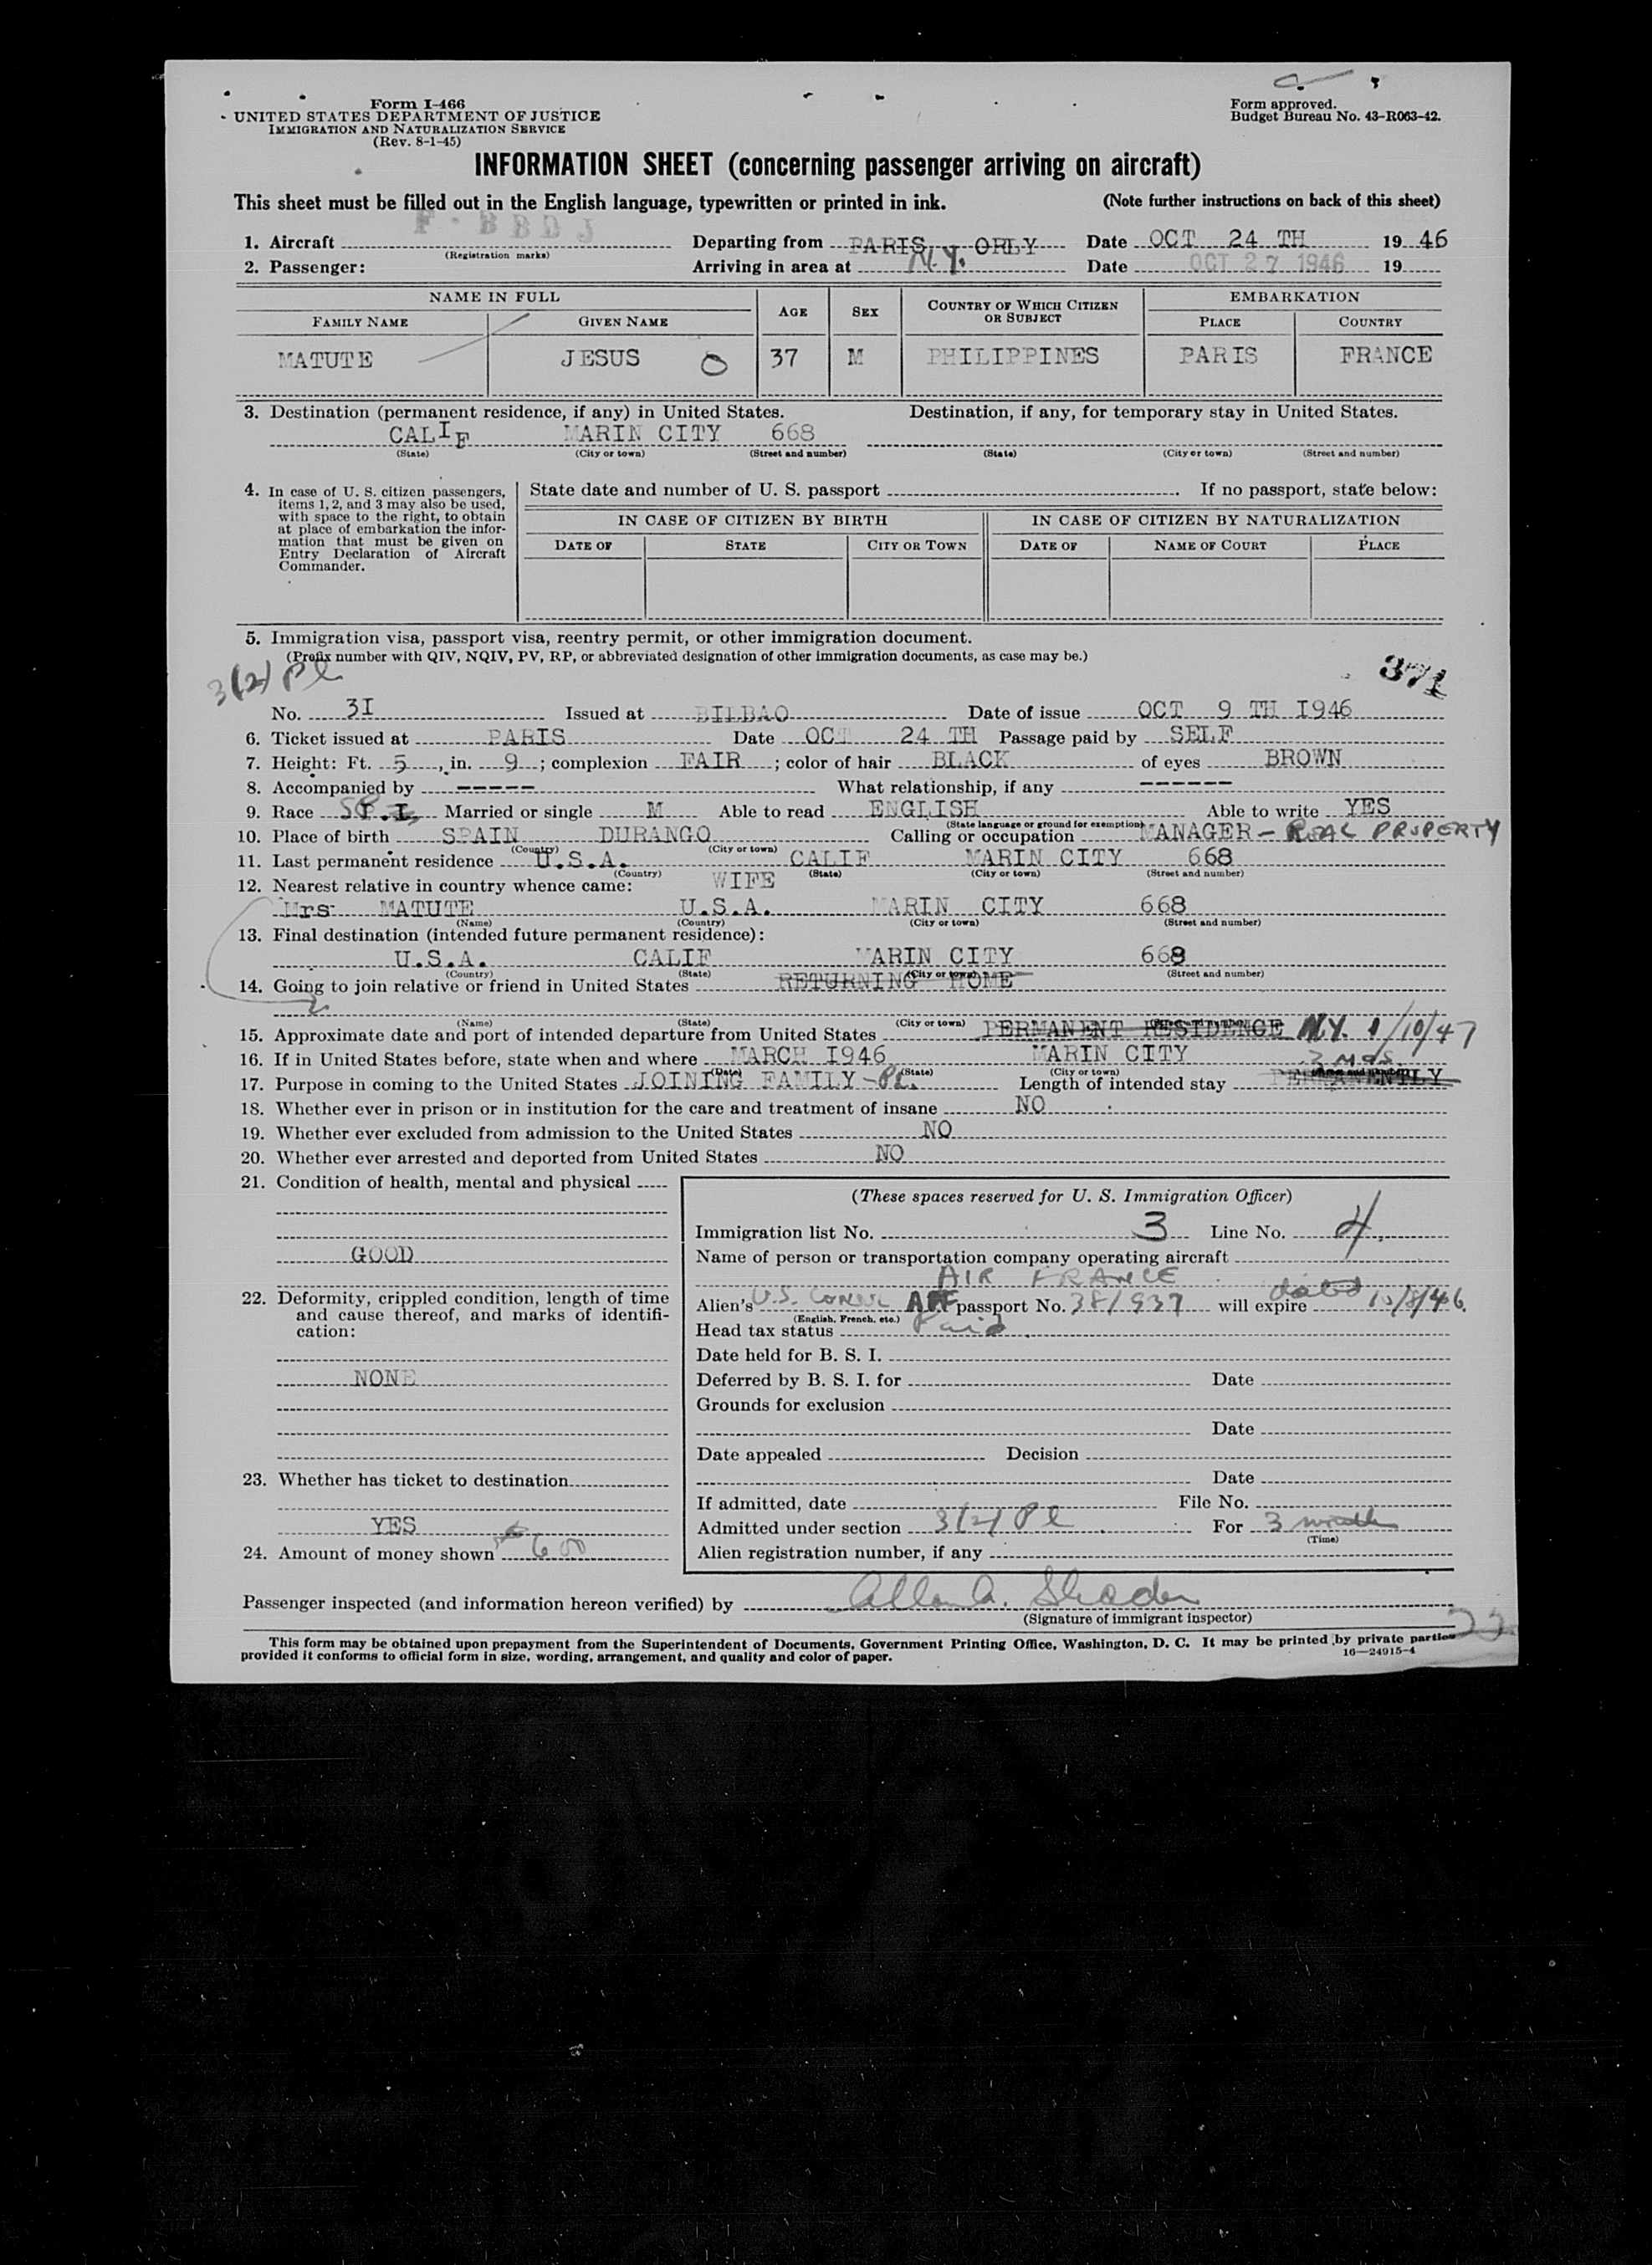 Form I-466
UNITED STATES DEPARTMENT OF JUSTICE
IMMIGRATION AND NATURALIZATION SERVICE
(Rev. 8-1-45)
Form approved.
Budget Bureau No. 43-R063-42.
INFORMATION SHEET (concerning passenger arriving on aircraft)
This sheet must be filled out in the English language, typewritten or printed in ink. (Note further instructions on back of this sheet)
F-BBDJ
1. Aircraft Departing from PARIS, ORLY Date OCT 24 TH 19 46
(Registration marks)
2. Passenger: Arriving in area at N.Y. Date OCT 27 1946 19
NAME IN FULL AGE SEX COUNTRY OF WHICH CITIZEN OR SUBJECT EMBARKATION
FAMILY NAME GIVEN NAME PLACE COUNTRY
MATUTE JESUS O 37 M PHILIPPINES PARIS FRANCE
3. Destination (permanent residence, if any) in United States. Destination, if any, for temporary stay in United States.
CALIF MARIN CITY 668
(State) (City or town) (Street and number) (State) (City or town) (Street and number)
4. In case of U. S. citizen passengers, items 1, 2, and 3 may also be used, with space to the right, to obtain at place of embarkation the information that must be given on Entry Declaration of Aircraft Commander.
State date and number of U. S. passport . If no passport, state below:
IN CASE OF CITIZEN BY BIRTH IN CASE OF CITIZEN BY NATURALIZATION
DATE OF STATE CITY OR TOWN DATE OF NAME OF COURT PLACE
5. Immigration visa, passport visa, reentry permit, or other immigration document.
(Prefix number with QIV, NQIV, PV, RP, or abbreviated designation of other immigration documents, as case may be.)
3(2) Pl 371
No. 3I Issued at BILBAO Date of issue OCT 9 TH I946
6. Ticket issued at PARIS Date OCT 24 TH Passage paid by SELF
7. Height: Ft. 5, in. 9; complexion FAIR; color of hair BLACK of eyes BROWN
8. Accompanied by ----- What relationship, if any ------
9. Race P.I. Married or single M Able to read ENGLISH Able to write YES
(State language or ground for exemption)
10. Place of birth SPAIN DURANGO Calling or occupation MANAGER - REAL PROPERTY
(Country) (City or town)
11. Last permanent residence U.S.A. CALIF MARIN CITY 668
(Country) (State) (City or town) (Street and number)
12. Nearest relative in country whence came: WIFE
Mrs MATUTE U.S.A. MARIN CITY 668
(Name) (Country) (City or town) (Street and number)
13. Final destination (intended future permanent residence):
U.S.A. CALIF MARIN CITY 668
(Country) (State) (City or town) (Street and number)
14. Going to join relative or friend in United States RETURNING HOME
(Name) (State) (City or town) (Street and number)
15. Approximate date and port of intended departure from United States PERMANENT RESIDENCE N.Y. 1/10/47
16. If in United States before, state when and where MARCH I946 MARIN CITY
(Date) (State) (City or town) (Street and number)
3 mos.
17. Purpose in coming to the United States JOINING FAMILY - PL. Length of intended stay PERMANENTLY
18. Whether ever in prison or in institution for the care and treatment of insane NO
19. Whether ever excluded from admission to the United States NO
20. Whether ever arrested and deported from United States NO
21. Condition of health, mental and physical
GOOD
22. Deformity, crippled condition, length of time and cause thereof, and marks of identification:
NONE
23. Whether has ticket to destination
YES
24. Amount of money shown 600
(These spaces reserved for U. S. Immigration Officer)
Immigration list No. 3 Line No. 4
Name of person or transportation company operating aircraft
AIR FRANCE
Alien's U.S. Consul AFF passport No. 38/937 will expire dated 10/8/46.
(English, French, etc.)
Head tax status Paid
Date held for B. S. I.
Deferred by B. S. I. for Date
Grounds for exclusion
Date
Date appealed Decision
Date
If admitted, date File No.
Admitted under section 3(2) Pl For 3 months
(Time)
Alien registration number, if any
Passenger inspected (and information hereon verified) by Allan A. Shader
(Signature of immigrant inspector)
This form may be obtained upon prepayment from the Superintendent of Documents, Government Printing Office, Washington, D. C. It may be printed by private parties
provided it conforms to official form in size, wording, arrangement, and quality and color of paper.
16—24915-4